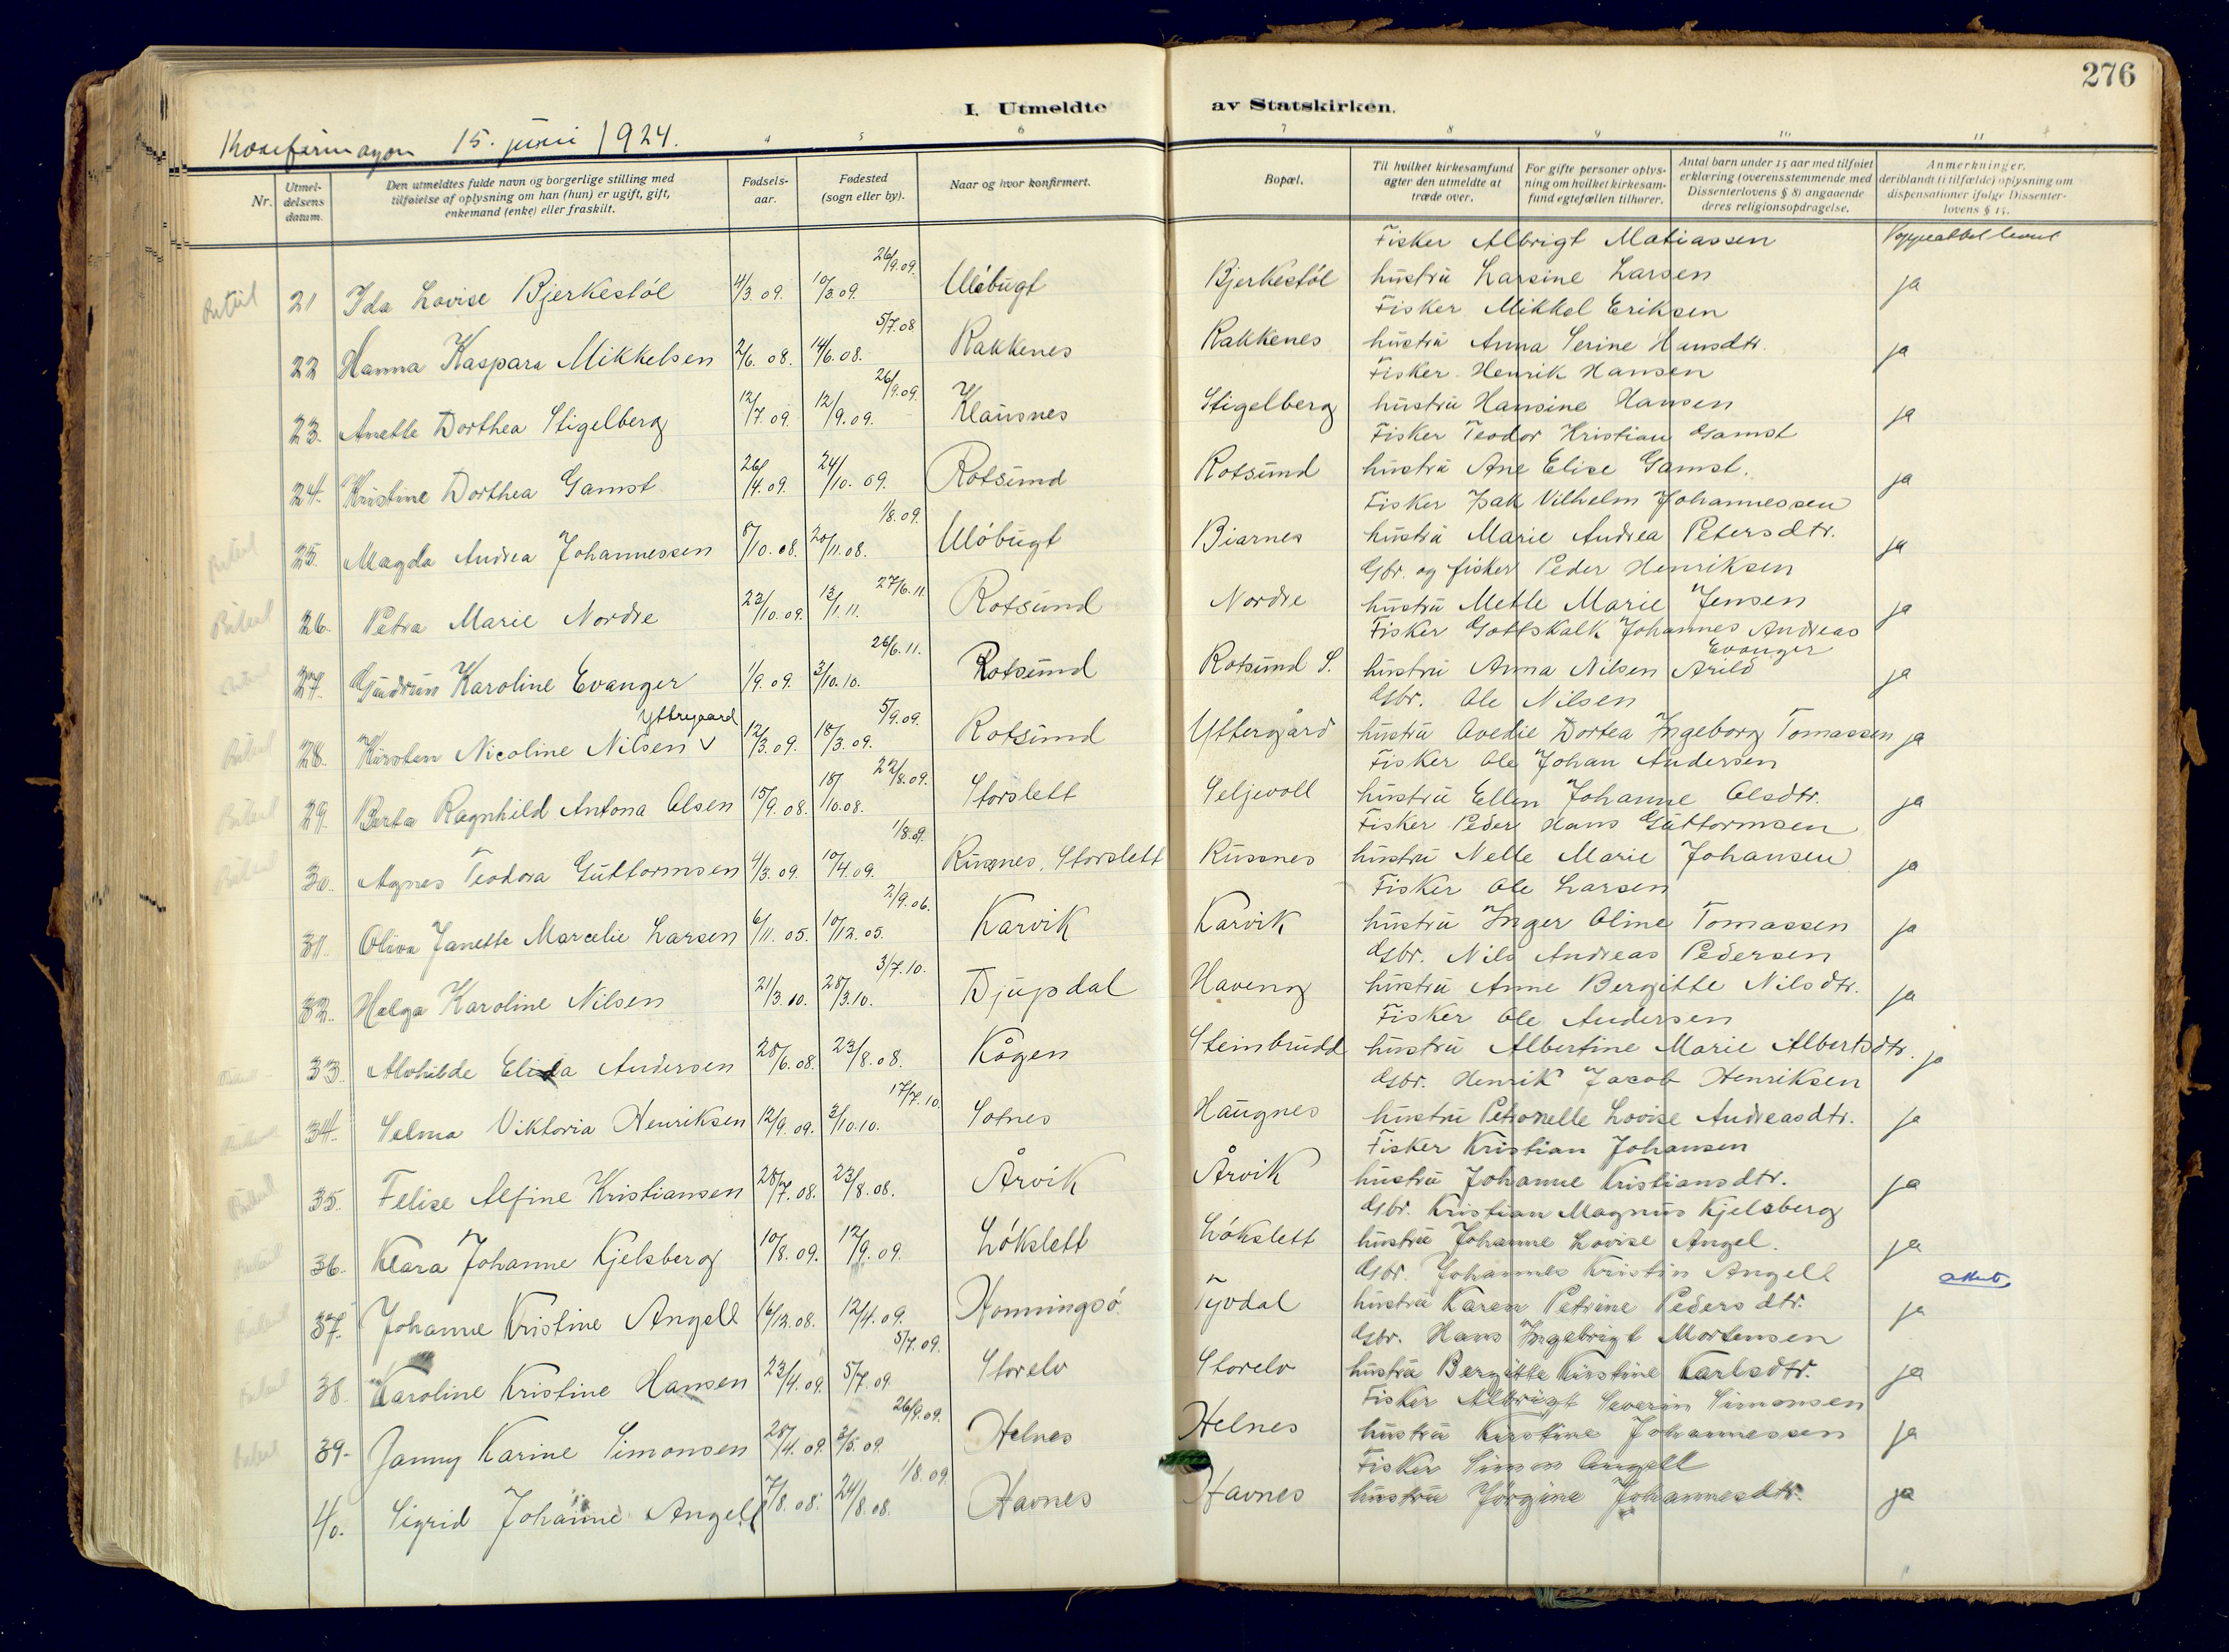 276
I. Utmeldte av Statskirken.
15. juni 1924.
4 5 6 7 8 9 10 11
Nr.
Utmeldelsens datum.
Den utmeldtes fulde navn og borgerlige stilling med tilføielse af oplysning om han (hun) er ugift, gift, enkemand (enke) eller fraskilt.
Fødselsaar.
Fødested (sogn eller by).
Naar og hvor konfirmert.
Bopæl.
Til hvilket kirkesamfund agter den utmeldte at træde over.
For gifte personer oplysning om hvilket kirkesamfund egtefællen tilhører.
Antal barn under 15 aar med tilføiet erklæring (overensstemmende med Dissenterlovens § 8) angaaende deres religionsopdragelse.
Anmerkninger, deriblandt (i tilfælde) oplysning om dispensationer ifølge Dissenterlovens § 15.
Fisker Albrigt Matiassen
21 Ida Lovise Bjerkestöl 4/3 09. 10/3 09. 26/9.09. Ulöbugt Bjerkestöl hustru Larsine Larsen ja
Fisker Mikkel Eriksen
22 Hanna Kaspara Mikkelsen 2/6. 08. 14/6. 08. 5/7.08 Rakkenes Rakkenes hustru Anna Serine Hansdtr. ja
Fisker Henrik Hansen
23. Anette Dorthea Stigelberg 12/7. 09. 12/9. 09. 26/9.09. Klausnes Stigelberg hustru Hansine Hansen ja
Fisker Teodor Kristian Gamst
24. Kristine Dorthea Gamst 26/4. 09. 24/10. 09. Rotsund Rotsund hustru Ane Elise Gamst. ja
Fisker Isak Vilhelm Johannessen
25. Magda Andrea Johannessen 8/10. 08. 20/11. 08. 1/8. 09. Ulöbugt Biarnes hustru Marie Andrea Petersdtr. ja
Gbr. og fisker Peder Henriksen
26. Petra Marie Nordre 23/10. 09. 13/1. 11. 27/6. 11. Rotsund Nordre hustru Mette Marie Jensen ja
Fisker Gottskalk Johannes Andreas Evanger
27. Gudrun Karoline Evanger 1/9. 09. 3/10. 10. 26/6. 11. Rotsund Rotsund S. hustru Anna Nilsen Arild ja
Gbr. Ole Nilsen
Yttregaard
28. Kirsten Nicoline Nilsen v 12/3. 09. 18/3. 09. 5/9. 09. Rotsund Yttergård hustru Ovedie Dortea Ingeborg Tomassen ja
Fisker Ole Johan Andersen
29. Berta Ragnhild Antona Olsen 15/9. 08. 18/10. 08. 22/8. 09. Storslett Seljevoll hustru Ellen Johanne Olsdtr. ja
Fisker Peder Hans Guttormsen
30. Agnes Teodora Guttormsen 4/3. 09. 10/4. 09. 1/8. 09. Russnes, Storslett Russnes hustru Nelle Marie Johansen ja
Fisker Ole Larsen
31. Oliva Janette Marcelie Larsen 6/11. 05. 10/12. 05. 2/9. 06. Karvik Karvik hustru Inger Oline Tomassen ja
Gbr. Nils Andreas Pedersen
32. Helga Karoline Nilsen 21/3. 10. 28/3. 10. 3/7. 10. Djupdal Haveng hustru Anne Bergitte Nilsdtr. ja
Fisker Ole Andersen
33. Alvhilde Elida Andersen 28/6. 08. 23/8. 08. Kågen Steinbrudd hustru Albertine Marie Albertsdtr. ja
Gbr. Henrik Jacob Henriksen
34. Selma Viktoria Henriksen 12/9. 09. 3/10. 10. 17/7. 10. Sotnes Haugnes hustru Petronelle Lovise Andreasdtr. ja
Fisker Kristian Johansen
35. Felise Alfine Kristiansen 28/7. 08. 23/8. 08. Årvik Årvik hustru Johanne Kristiansdtr. ja
Gbr. Kristian Magnus Kjelsberg
36. Klara Johanne Kjelsberg 10/8. 09. 12/9. 09. Lökslett Lökslett hustru Johanne Lovise Angel. ja
Gbr. Johannes Kristin Angell
37. Johanne Kristine Angell 16/12. 08. 12/4. 09. Honningsö Tjvdal hustru Karen Petrine Pedersdtr. ja
Gbr. Hans Ingebrigt Mortensen
38. Karoline Kristine Hansen 23/4. 09. 5/7. 09. 5/7. 09. Storelv Storelv hustru Bergitte Kirstine Karlsdtr. ja
Fisker Albrigt Severin Simonsen
39. Janny Karine Simonsen 28/4. 09. 3/5. 09. 26/9. 09. Helnes Helnes hustru Kirstine Johannessen ja
Fisker Simon Angell
40. Sigrid Johanne Angell 7/8. 08. 24/8. 08. 1/8. 09 Havnes Havnes hustru Jörgine Johannesdtr. ja